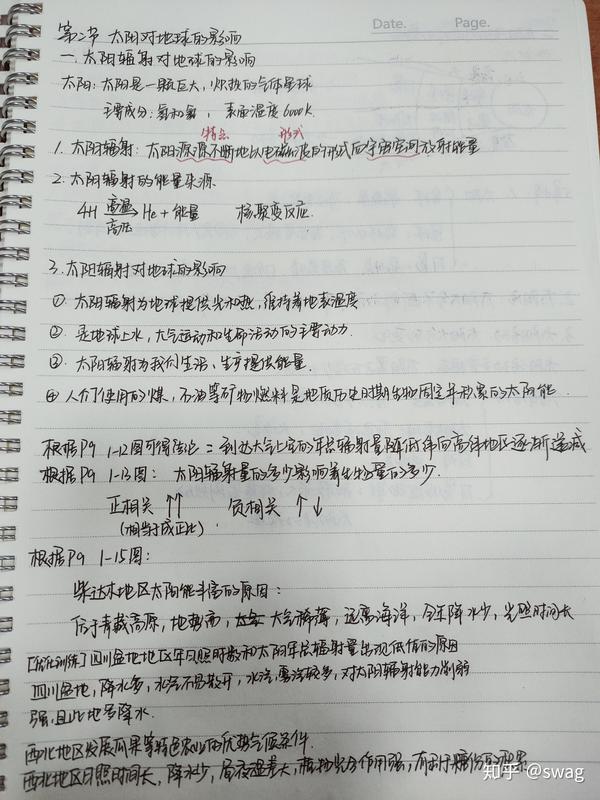 Date. Page.
第二节 太阳对地球的影响
一.太阳辐射对地球的影响
太阳:太阳是一颗巨大,炽热的气体星球
主要成分:氢和氦,表面温度6000K.
特点 形式
1.太阳辐射:太阳源源不断地以电磁波的形式向宇宙空间放射能量
2.太阳辐射的能量来源
4H 高温 高压 → He+能量 核聚变反应.
3.太阳辐射对地球的影响
①.太阳辐射为地球提供光和热,维持着地表温度
②.是地球上水,大气运动和生命活动的主要动力.
③.太阳辐射为我们生活、生产提供能量.
④人们使用的煤,石油等矿物燃料是地质历史时期生物固定并积累的太阳能.
根据P9 1-12图可得结论:到达大气上空的年总辐射量随低纬向高纬地区逐渐递减
根据P9 1-13图:太阳辐射量的多少影响着生物量的多少.
正相关 ↑↑ 负相关 ↑↓
(相当于成正比)
根据P9 1-15图:
柴达木地区太阳能丰富的原因:
位于青藏高原,地势高,大气稀薄,远离海洋,全年降水少,光照时间长
[优化训练]四川盆地地区年日照时数和太阳年总辐射量出现低值的原因
四川盆地,降水多,水汽不易散开,水汽,云汽较多,对太阳辐射能力削弱
强,且此地多降水.
西北地区发展瓜果等特色农业的优势气候条件.
西北地区日照时间长,降水少,昼夜温差大,植物光合作用强,有利于糖份的积累
知乎 @swag